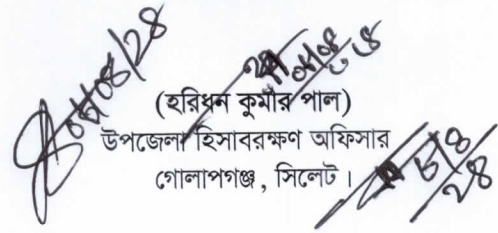 (হরিধন কুমার পাল)
উপজেলা হিসাবরক্ষণ অফিসার
গোলাপগঞ্জ, সিলেট।